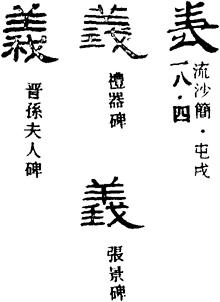 流沙簡·屯戍
一八·四
義
禮器碑
義
張景碑
義
晋孫夫人碑